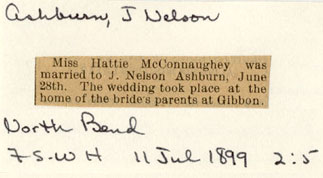 Ashburn, J Nelson
Miss Hattie McConnaughey was
married to J. Nelson Ashburn, June
28th. The wedding took place at the
home of the bride's parents at Gibbon.
North Bend
7 S-W H 11 Jul 1899 2:5